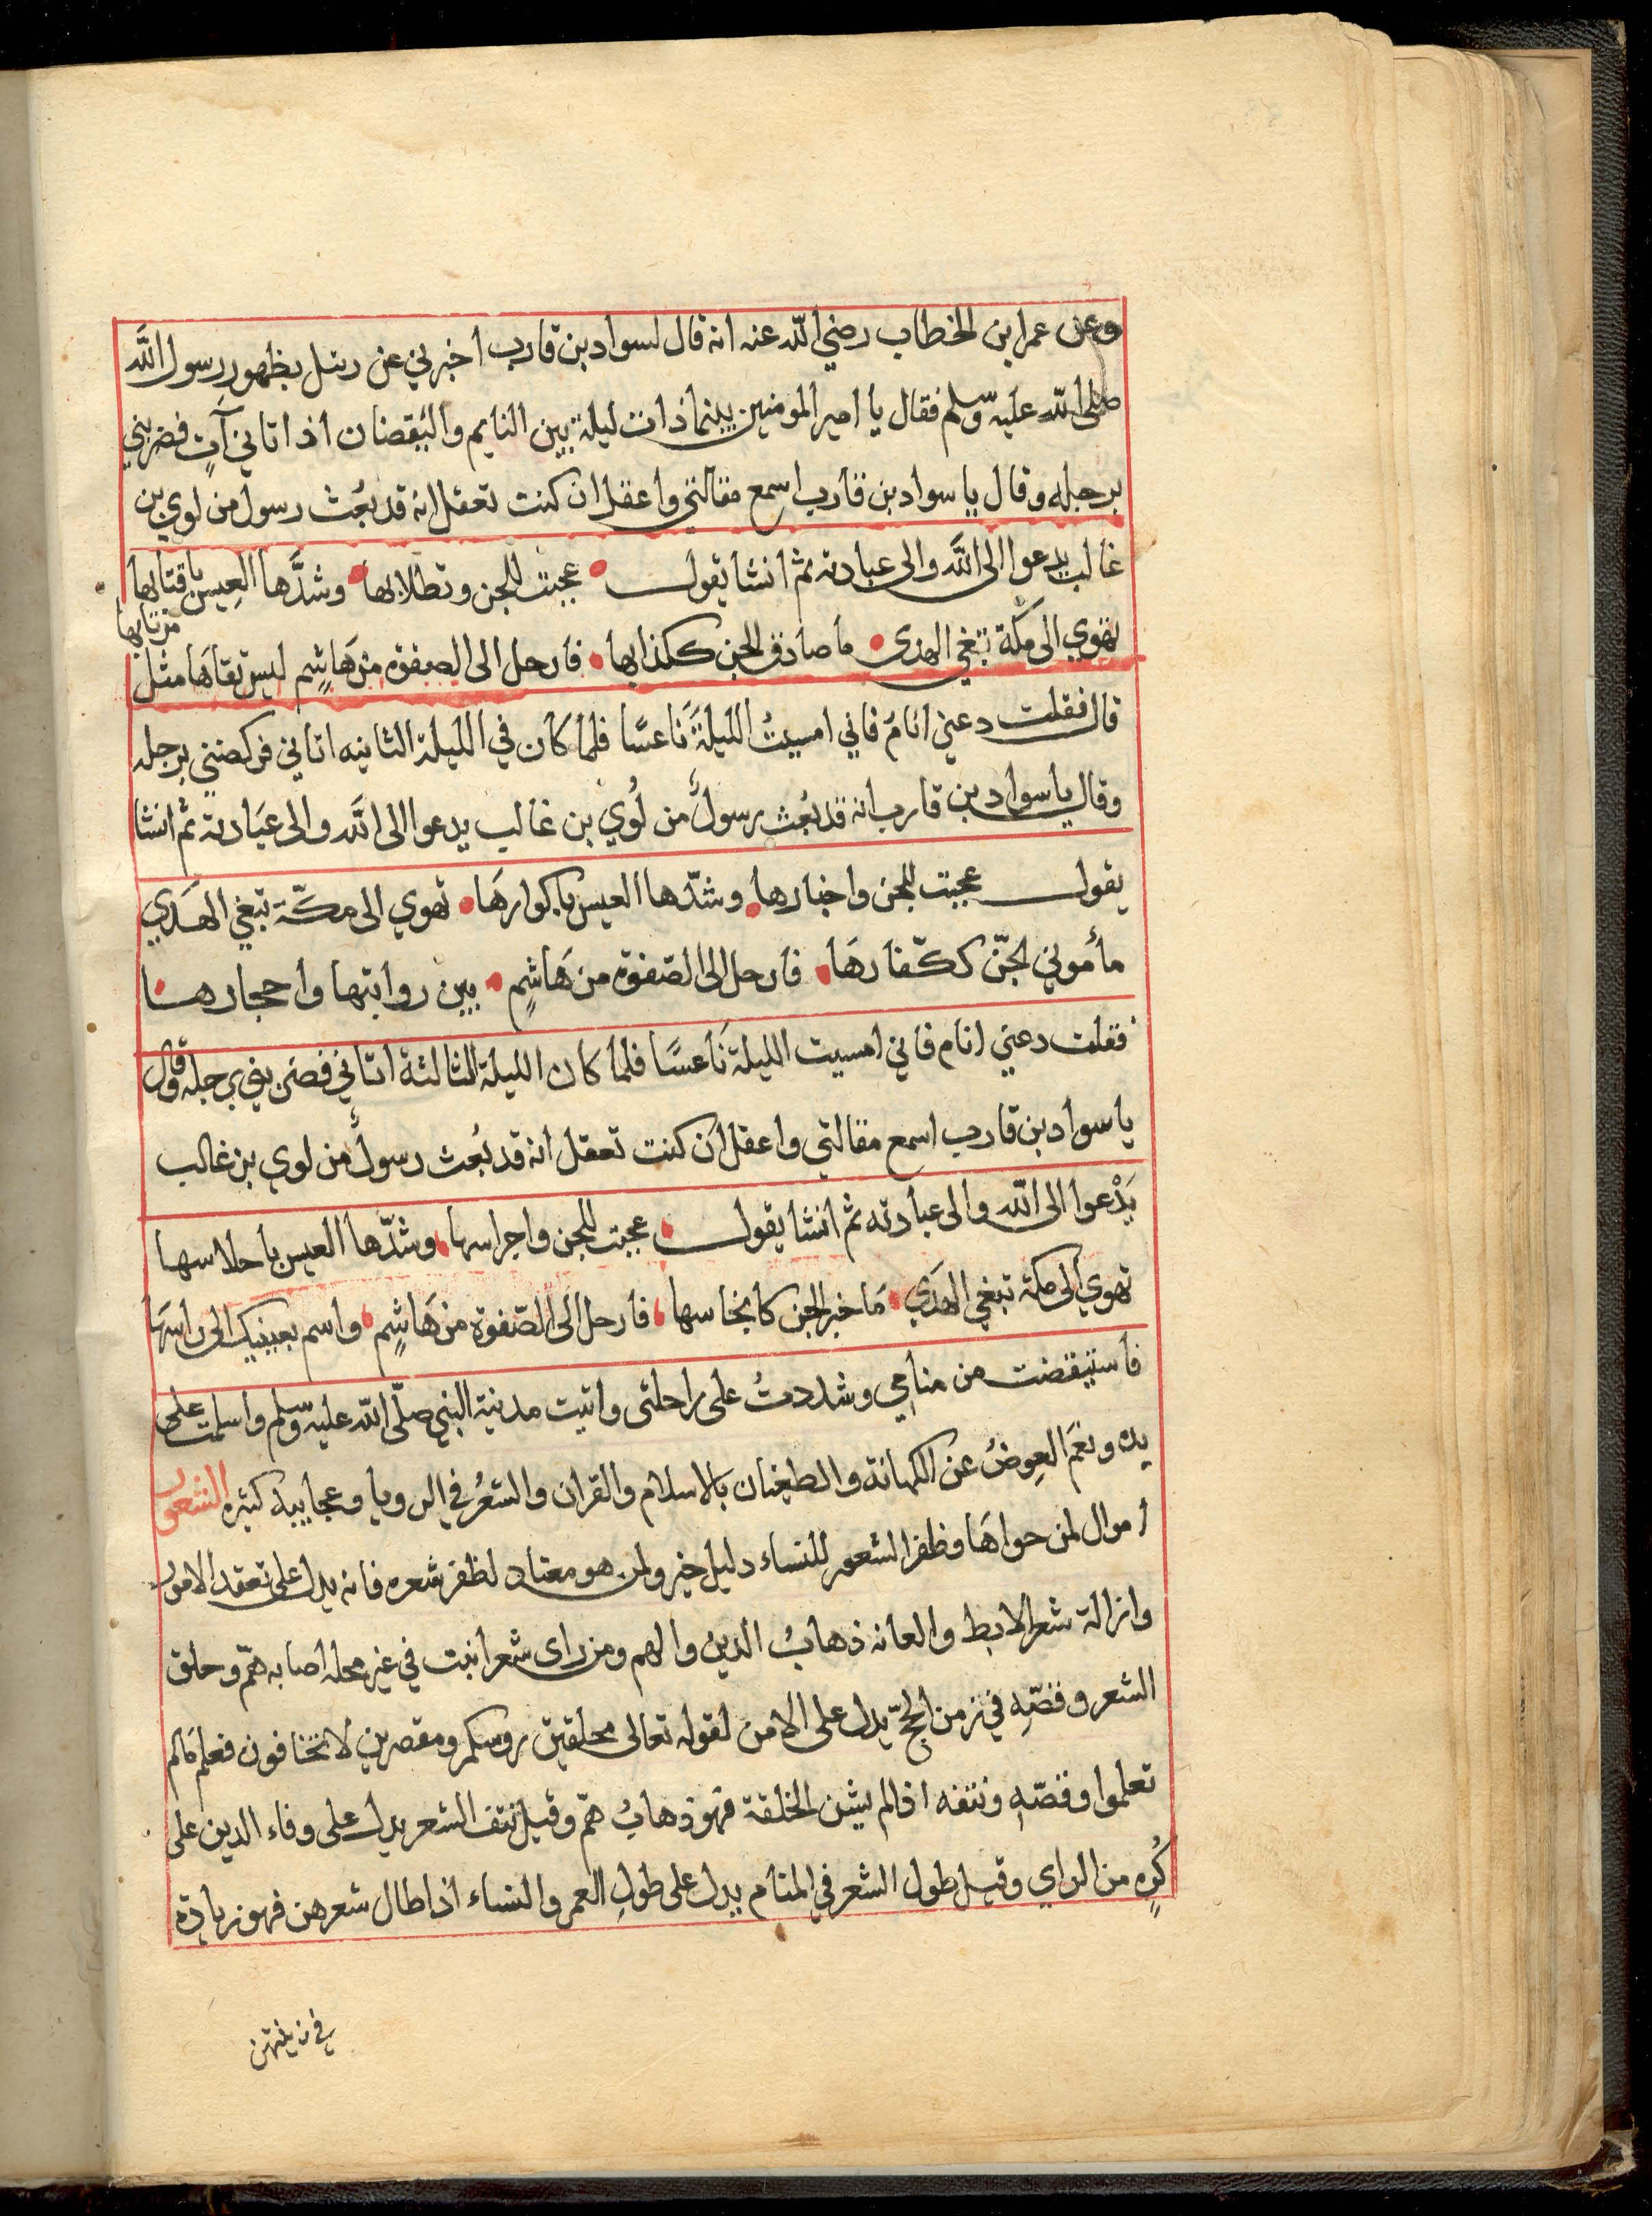 وعن عمر ابن الخطاب رضي الله عنه انه قال لسواد بن قارب اخبرني عن ريئل بظهور رسول الله
صلى الله عليه وسلم فقال يا امير المومنين بينما ذات ليلة بين النايم واليقضان اذ اتاني آتٍ فضربني
برجله وقال يا سواد بن قارب اسمع مقالتي واعقل ان كنت تعقل انه قد بُعث رسول من لوي بن
غالب يدعوا الى الله والى عبادته ثم انشا يقول عجبت للجن وتطلابها وشدَّها العِيس باقتابها
تهوي الى مكة تبغي الهدى ما صادق الجن ككذابها فارحل الى الصفوة من هَاشِمٍ ليس قدامها مثل
قال فقلت دعني انامُ فاني امسيتُ الليلةَ نَاعسًا فلما كان في الليلة الثانيه اتاني فركضني برجله
وقال يا سواد بن قارب انه قد بُعث رسولٌ من لُوي بن غالب يدعوا الى الله والى عبَادته ثم انشا
يقول عجبت للجن واخبارها وشدّها العيس باكوارهَا تهوي الى مكّة تبغي الهَدَي
مأموني الجنّ ككفّارهَا فارحل الى الصّفوة من هَاشِمٍ بين روابتها واحجارها
فقلت دعني انام فاني امسيت الليلة نَاعسًا فلما كان الليلة الثالثة اتاني فضربني برجله وقال
يا سواد بن قارب اسمع مقالتي واعقل ان كنت تعقل انه قد بُعث رسولٌ من لوي بن غالب
يَدْعوا الى الله والى عبادته ثم انشا يقول عجبت للجن واجراسها وشدّها العيس باحلاسها
تهوي الى مكة تبغي الهَدَي مَا خير الجن كانجاسها فارحل الى الصّفوة من هَاشِمٍ واسم بعينيك الى راسهَا
فاستيقضت من منامي وشددتُ على راحلتى واتيت مدنية النبي صلّى الله عليه وسلم واسلمت على
يده ونعَم العِوضُ عن الكهانة والطغيان بالاسلام والقران والشعرُ في الرويا وعجايبه كثيره الشعور
اموال لمن حواهَا وظفر الشعور للنساء دليل خير ولمن هو معتاد لظفر شعره فانه يدل على تعقد الامور
وازالة شعر الابط والعانه ذهابُ الدين والهم ومن راى شعرا نبت في غير محله اصابه همّ وحلق
الشعر وقصّهِ في زمن الحجّ يدل على الامن لقوله تعالى محلقين روسكم ومقصرين لا تخافون فعلم مَالم
تعلموا وقصّهِ ونتفه اذا لم يشن الخلقة فهو ذهابُ همّ وقيل نتف الشعر يدل على وفاء الدين على
كُرِه من الراي وقيل طول الشعر في المنام يدل على طولِ العمر والنساء اذا طال شعرهن فهو زيادة
في زينتهن